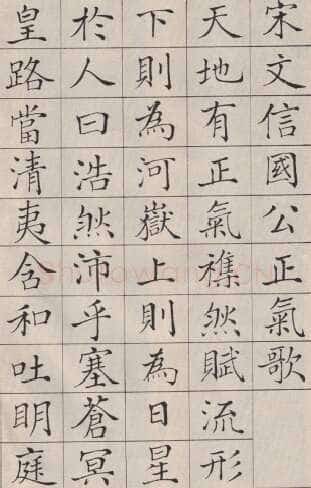 宋文信國公正氣歌
天地有正氣雜然賦流形
下則為河嶽上則為日星
於人曰浩然沛乎塞蒼冥
皇路當清夷含和吐明庭